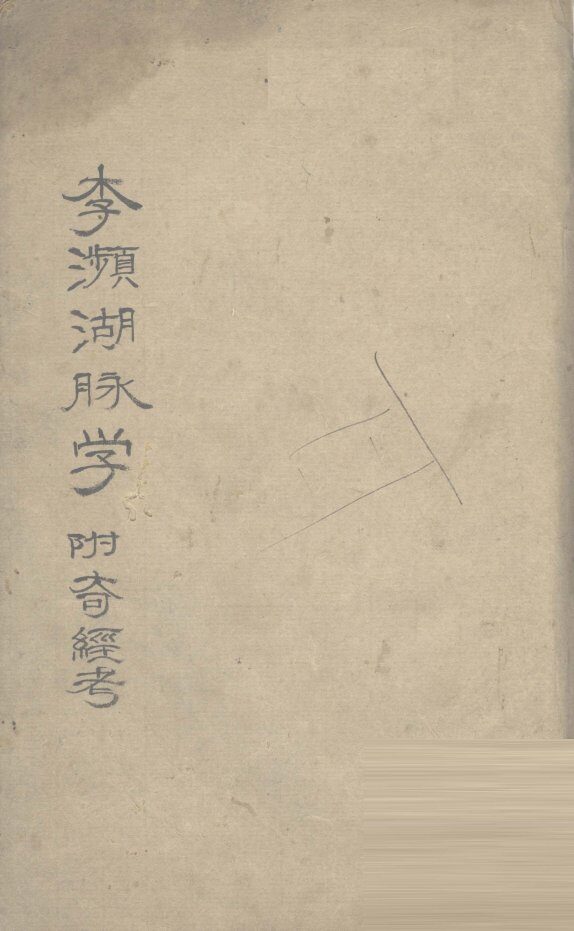 李瀕湖脉学 附奇經考